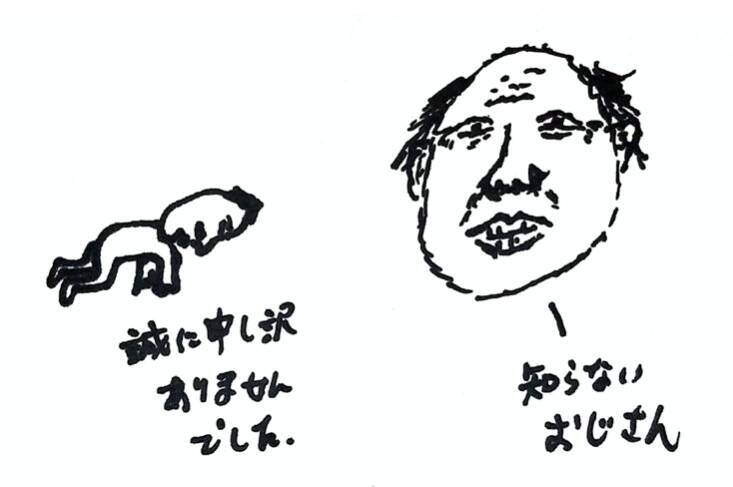 誠に申し訳
ありません
でした.
知らない
おじさん